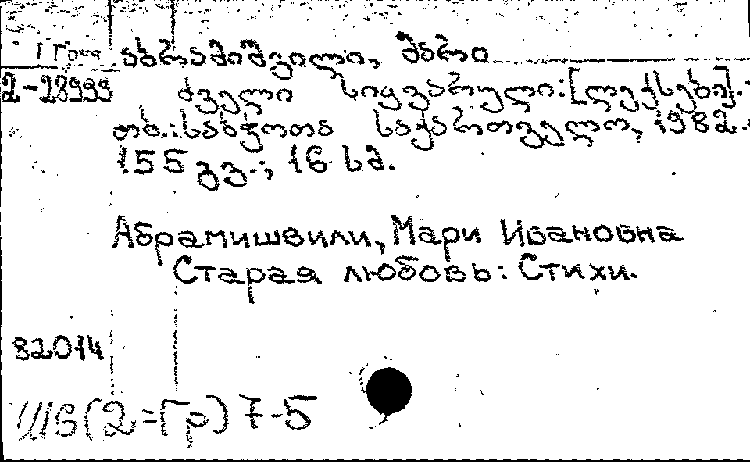 1 Груз აბრამიშვილი, მარი
2-28999 ძველი სიყვარული: [ლექსები]. -
თბ.: საბჭოთა საქართველო, 1982. -
155 გვ.; 16 სმ.
Абрамишвили, Мари Ивановна
Старая любовь: Стихи.
82014
Ш6(2=Гр)7-5